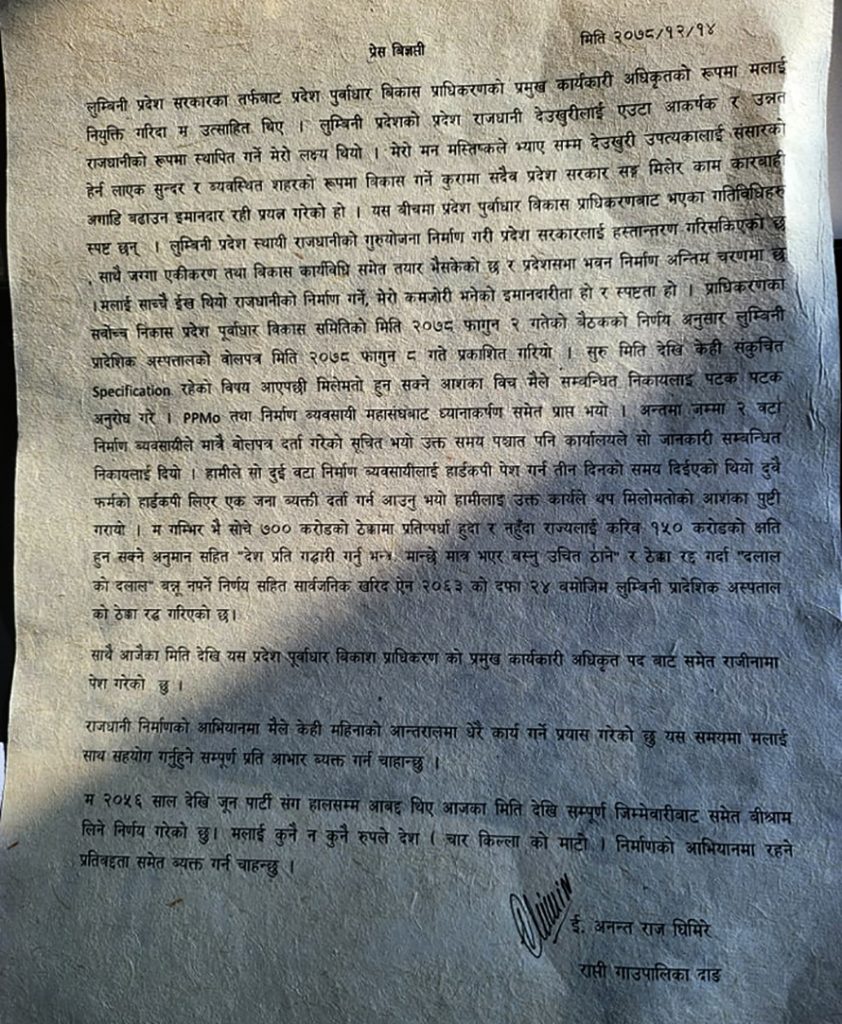 मिति २०७८/१२/१४
प्रेस बिज्ञप्ती
लुम्बिनी प्रदेश सरकारका तर्फबाट प्रदेश पुर्वाधार बिकास प्राधिकरणको प्रमुख कार्यकारी अधिकृतको रूपमा मलाई
नियुक्ति गरिदा म उत्साहित थिए । लुम्बिनी प्रदेशको प्रदेश राजधानी देउखुरीलाई एउटा आकर्षक र उन्नत
राजधानीको रूपमा स्थापित गर्ने मेरो लक्ष्य थियो । मेरो मन मस्तिष्कले भ्याए सम्म देउखुरी उपत्यकालाई संसारको
हेर्न लाएक सुन्दर र ब्यवस्थित शहरको रूपमा विकास गर्ने कुरामा सदैव प्रदेश सरकार सङ्ग मिलेर काम कारबाही
अगाडि बढाउन इमानदार रही प्रयत्न गरेको हो । यस बीचमा प्रदेश पुर्वाधार बिकास प्राधिकरणबाट भएका गतिविधिहरु
स्पष्ट छन् । लुम्बिनी प्रदेश स्थायी राजधानीको गुरुयोजना निर्माण गरी प्रदेश सरकारलाई हस्तान्तरण गरिसकिएको छ
, साथै जग्गा एकीकरण तथा बिकास कार्यबिधि समेत तयार भैसकेको छ र प्रदेशसभा भवन निर्माण अन्तिम चरणमा छ
। मलाई साच्चै ईख थियो राजधानीको निर्माण गर्ने, मेरो कमजोरी भनेको इमानदारीता हो र स्पष्टता हो । प्राधिकरणका
सर्वोच्च निकास प्रदेश पूर्वाधार विकास समितिको मिति २०७८ फागुन २ गतेको बैठकको निर्णय अनुसार लुम्बिनी
प्रादेशिक अस्पत्तालको बोलपत्र मिति २०७८ फागुन ८ गते प्रकाशित गरियो । सुरु मिति देखि केही संकुचित
Specification रहेको विषय आएपछी मिलेमतो हुन सक्ने आशका बिच मैले सम्वन्धित निकायलाई पटक पटक
अनुरोध गरे । PPMo तथा निर्माण ब्यवसायी महासंघबाट ध्यानाकर्षण समेत प्राप्त भयो । अन्तमा जम्मा २ वटा
निर्माण ब्यवसायीले मात्रै बोलपत्र दर्ता गरेको सूचित भयो उक्त समय पश्चात पनि कार्यालयले सो जानकारी सम्बन्धित
निकायलाई दियो । हामीले सो दुई वटा निर्माण ब्यवसायीलाई हार्डकपी पेश गर्न तीन दिनको समय दिईएको थियो दुवै
फर्मको हार्डकपी लिएर एक जना ब्यक्ती दर्ता गर्न आउनु भयो हामीलाइ उक्त कार्यले थप मिलोमतोको आशंका पुष्टी
गरायो । म गम्भिर भै सोचे ७०० करोडको ठेक्कामा प्रतिष्पर्धा हुदा र नहुँदा राज्यलाई करिब १५० करोडको क्षति
हुन सक्ने अनुमान सहित "देश प्रति गद्धारी गर्नु भन्दा मान्छे मात्र भएर बस्नु उचित ठाने" र ठेक्का रद्द गर्दा "दलाल
को दलाल" बन्नू नपर्ने निर्णय सहित सार्वजनिक खरिद ऐन २०६३ को दफा २४ बमोजिम लुम्बिनी प्रादेशिक अस्पताल
को ठेक्का रद्ध गरिएको छ।
साथै आजैका मिति देखि यस प्रदेश पूर्वाधार बिकाश प्राधिकरण को प्रमुख कार्यकारी अधिकृत पद बाट समेत राजीनामा
पेश गरेको छु ।
राजधानी निर्माणको आभियानमा मैले केही महिनाको आन्तरालमा धेरै कार्य गर्ने प्रयास गरेको छु यस समयमा मलाई
साथ सहयोग गर्नुहुने सम्पूर्ण प्रति आभार ब्यक्त गर्न चाहान्छु ।
म २०५६ साल देखि जून पार्टी संग हालसम्म आबद्द थिए आजका मिति देखि सम्पूर्ण जिम्मेवारीबाट समेत बीश्राम
लिने निर्णय गरेको छु। मलाई कुनै न कुनै रुपले देश ( चार किल्ला को माटो । निर्माणको आभियानमा रहने
प्रतिवद्दता समेत ब्यक्त गर्न चाहन्छु ।
ई. अनन्त राज घिमिरे
राप्ती गाउपालिका दाङ